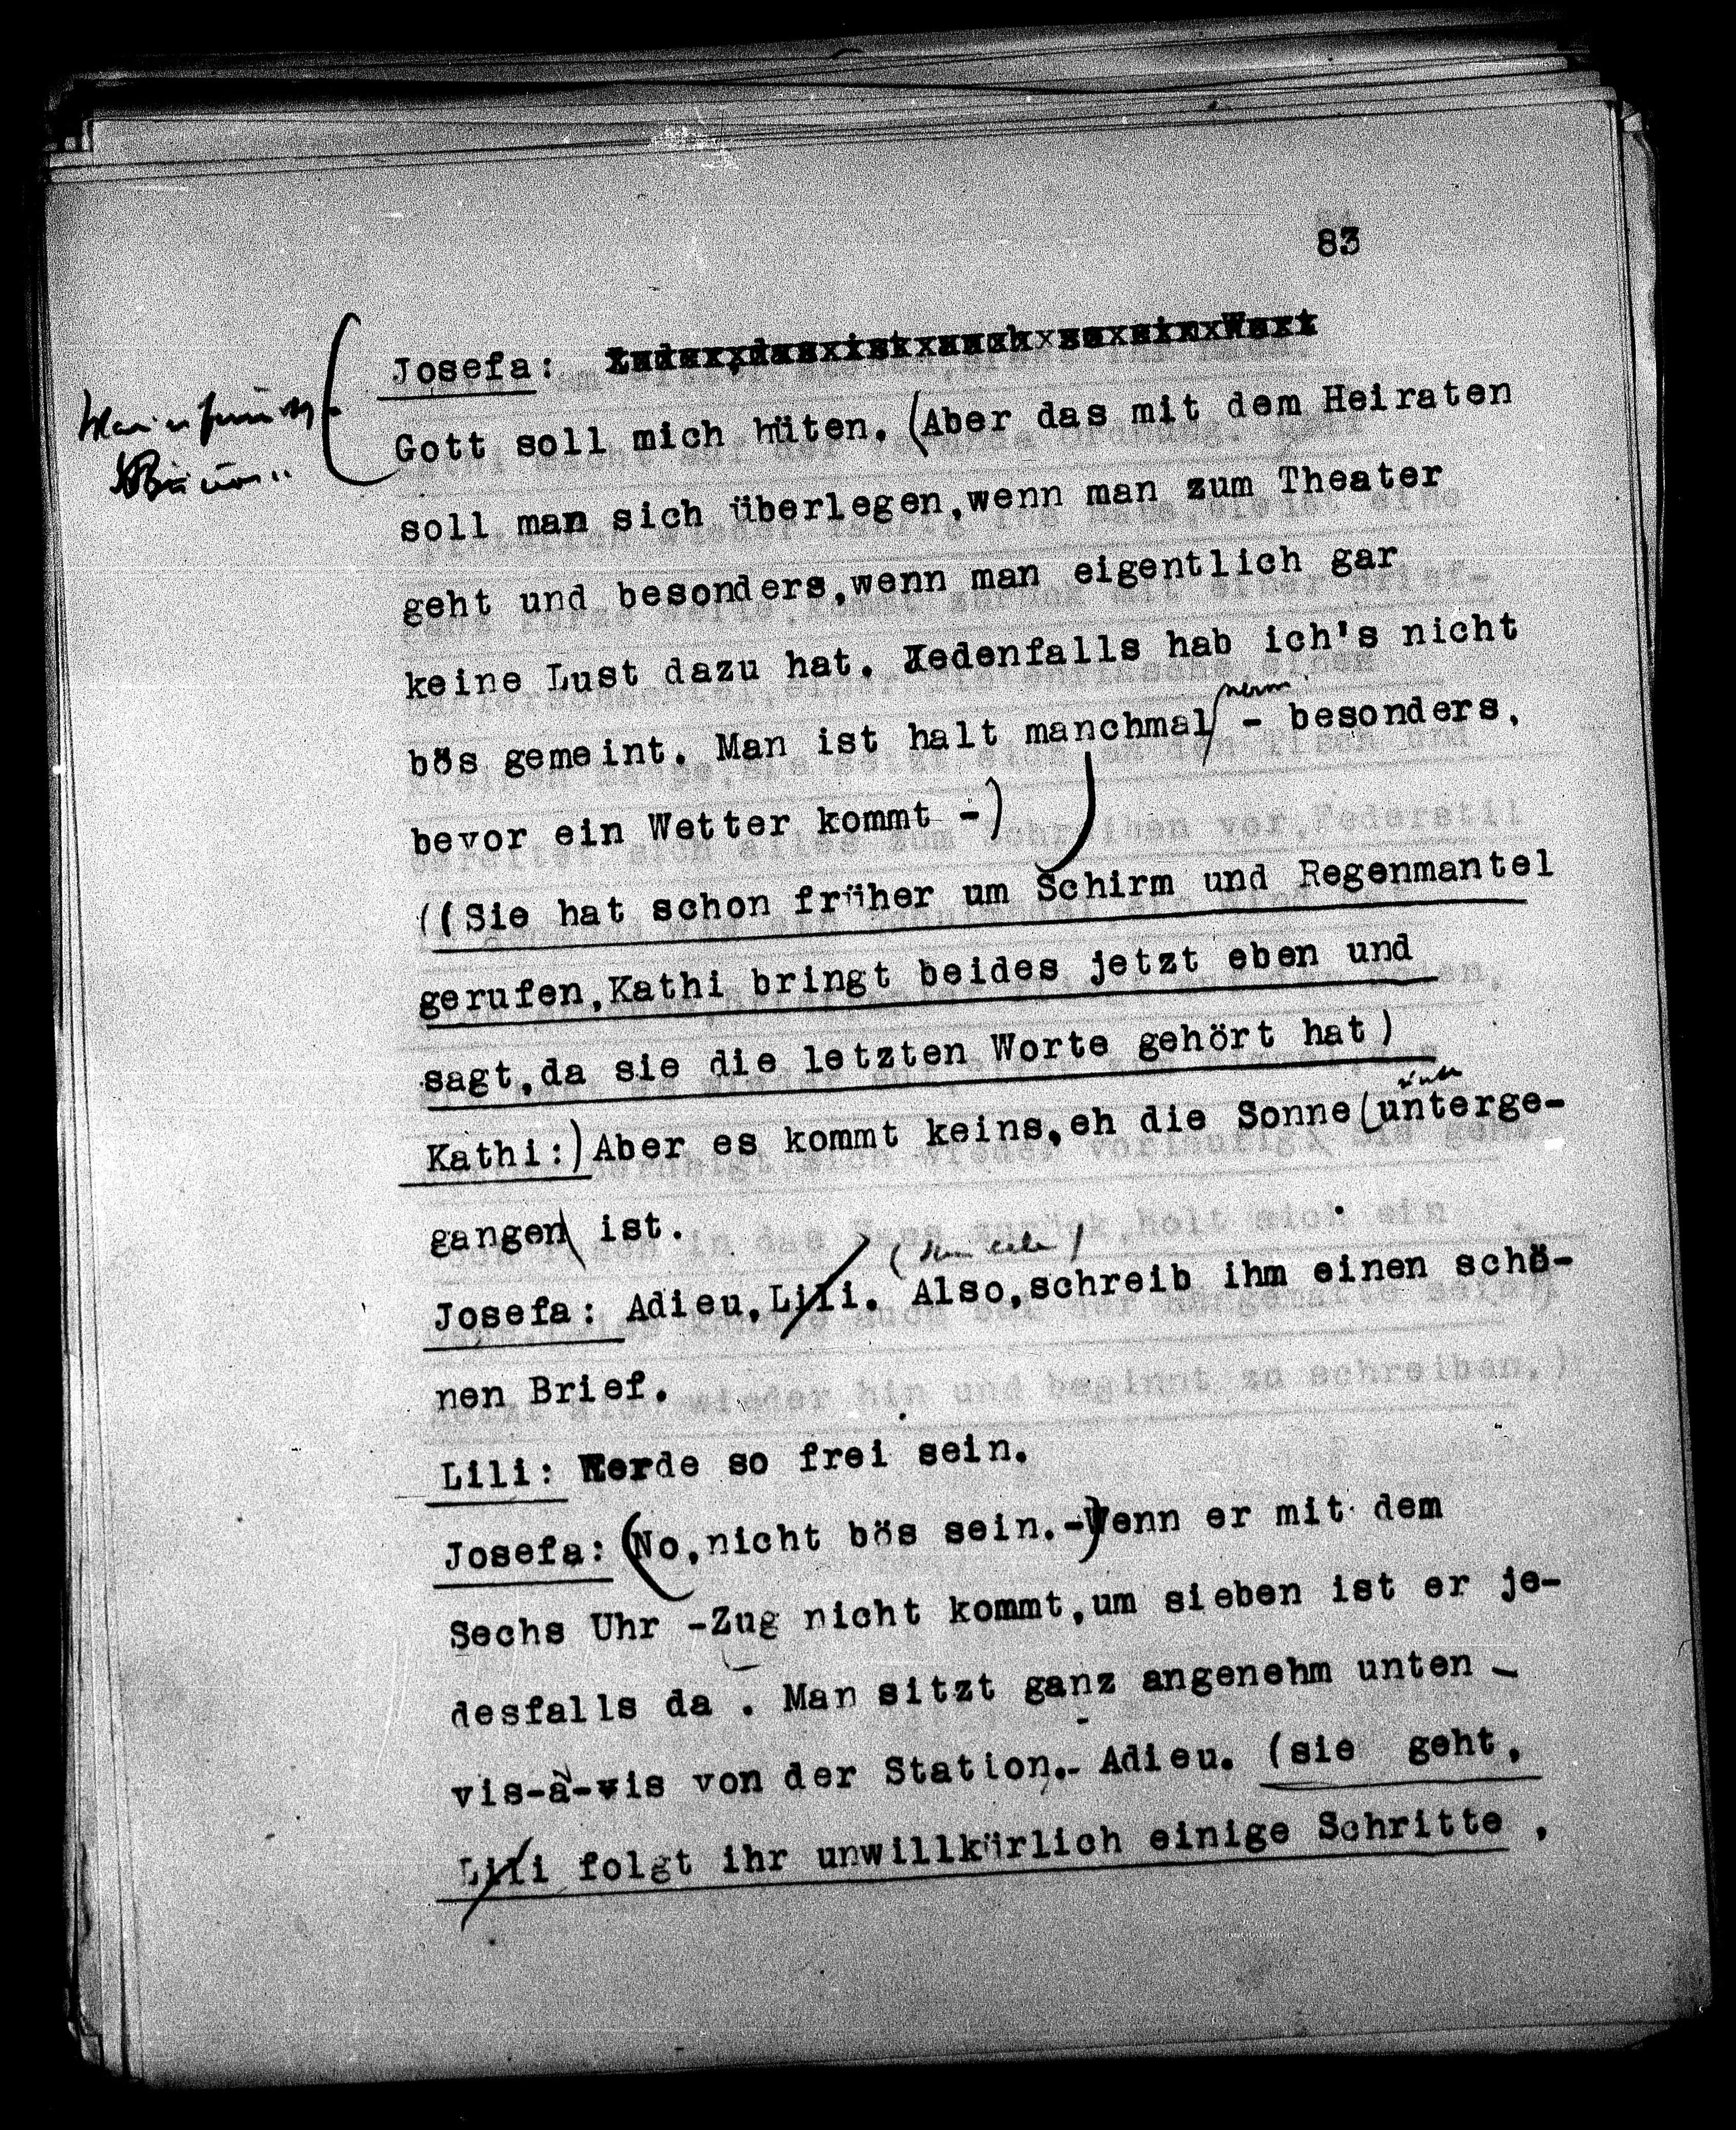 83
Josefa:
Gott soll mich hüten. (Aber das mit dem Heiraten
soll man sich überlegen,wenn man zum Theater
geht und besonders,wenn man eigentlich gar
keine Lust dazu hat. Jedenfalls hab ich's nicht
bös gemeint. Man ist halt manchmal - besonders,
bevor ein Wetter kommt -)
((Sie hat schon früher um Schirm und Regenmantel
gerufen,Kathi bringt beides jetzt eben und
sagt,da sie die letzten Worte gehört hat)
Kathi:) Aber es kommt keins,eh die Sonne (unterge-
gangen ist.
Josefa: Adieu,Lili. Also,schreib ihm einen schö-
nen Brief.
Lili: Werde so frei sein.
Josefa: (No,nicht bös sein.-)Wenn er mit dem
Sechs Uhr -Zug nicht kommt,um sieben ist er je-
desfalls da . Man sitzt ganz angenehm unten -
vis-à-vis von der Station.- Adieu. (sie geht,
Lili folgt ihr unwillkürlich einige Schritte ,